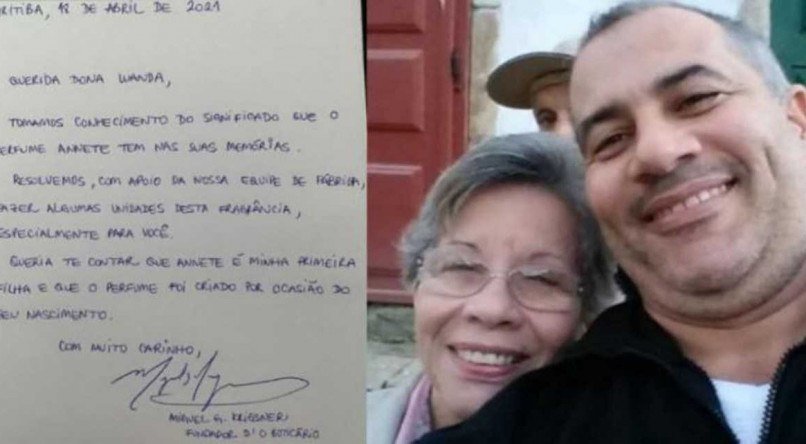 RITIBA, 18 DE ABRIL DE 2021
QUERIDA DONA WANDA,
TOMAMOS CONHECIMENTO DO SIGNIFICADO QUE O
ERFUME ANNETE TEM NAS SUAS MEMÓRIAS.
RESOLVEMOS, COM APOIO DA NOSSA EQUIPE DE FÁBRICA,
FAZER ALGUMAS UNIDADES DESTA FRAGRÂNCIA,
ESPECIALMENTE PARA VOCÊ.
QUERIA TE CONTAR QUE ANNETE É MINHA PRIMEIRA
FILHA E QUE O PERFUME FOI CRIADO POR OCASIÃO DO
SEU NASCIMENTO.
COM MUITO CARINHO,
MIGUEL G. KRIGSNER
FUNDADOR D'O BOTICÁRIO